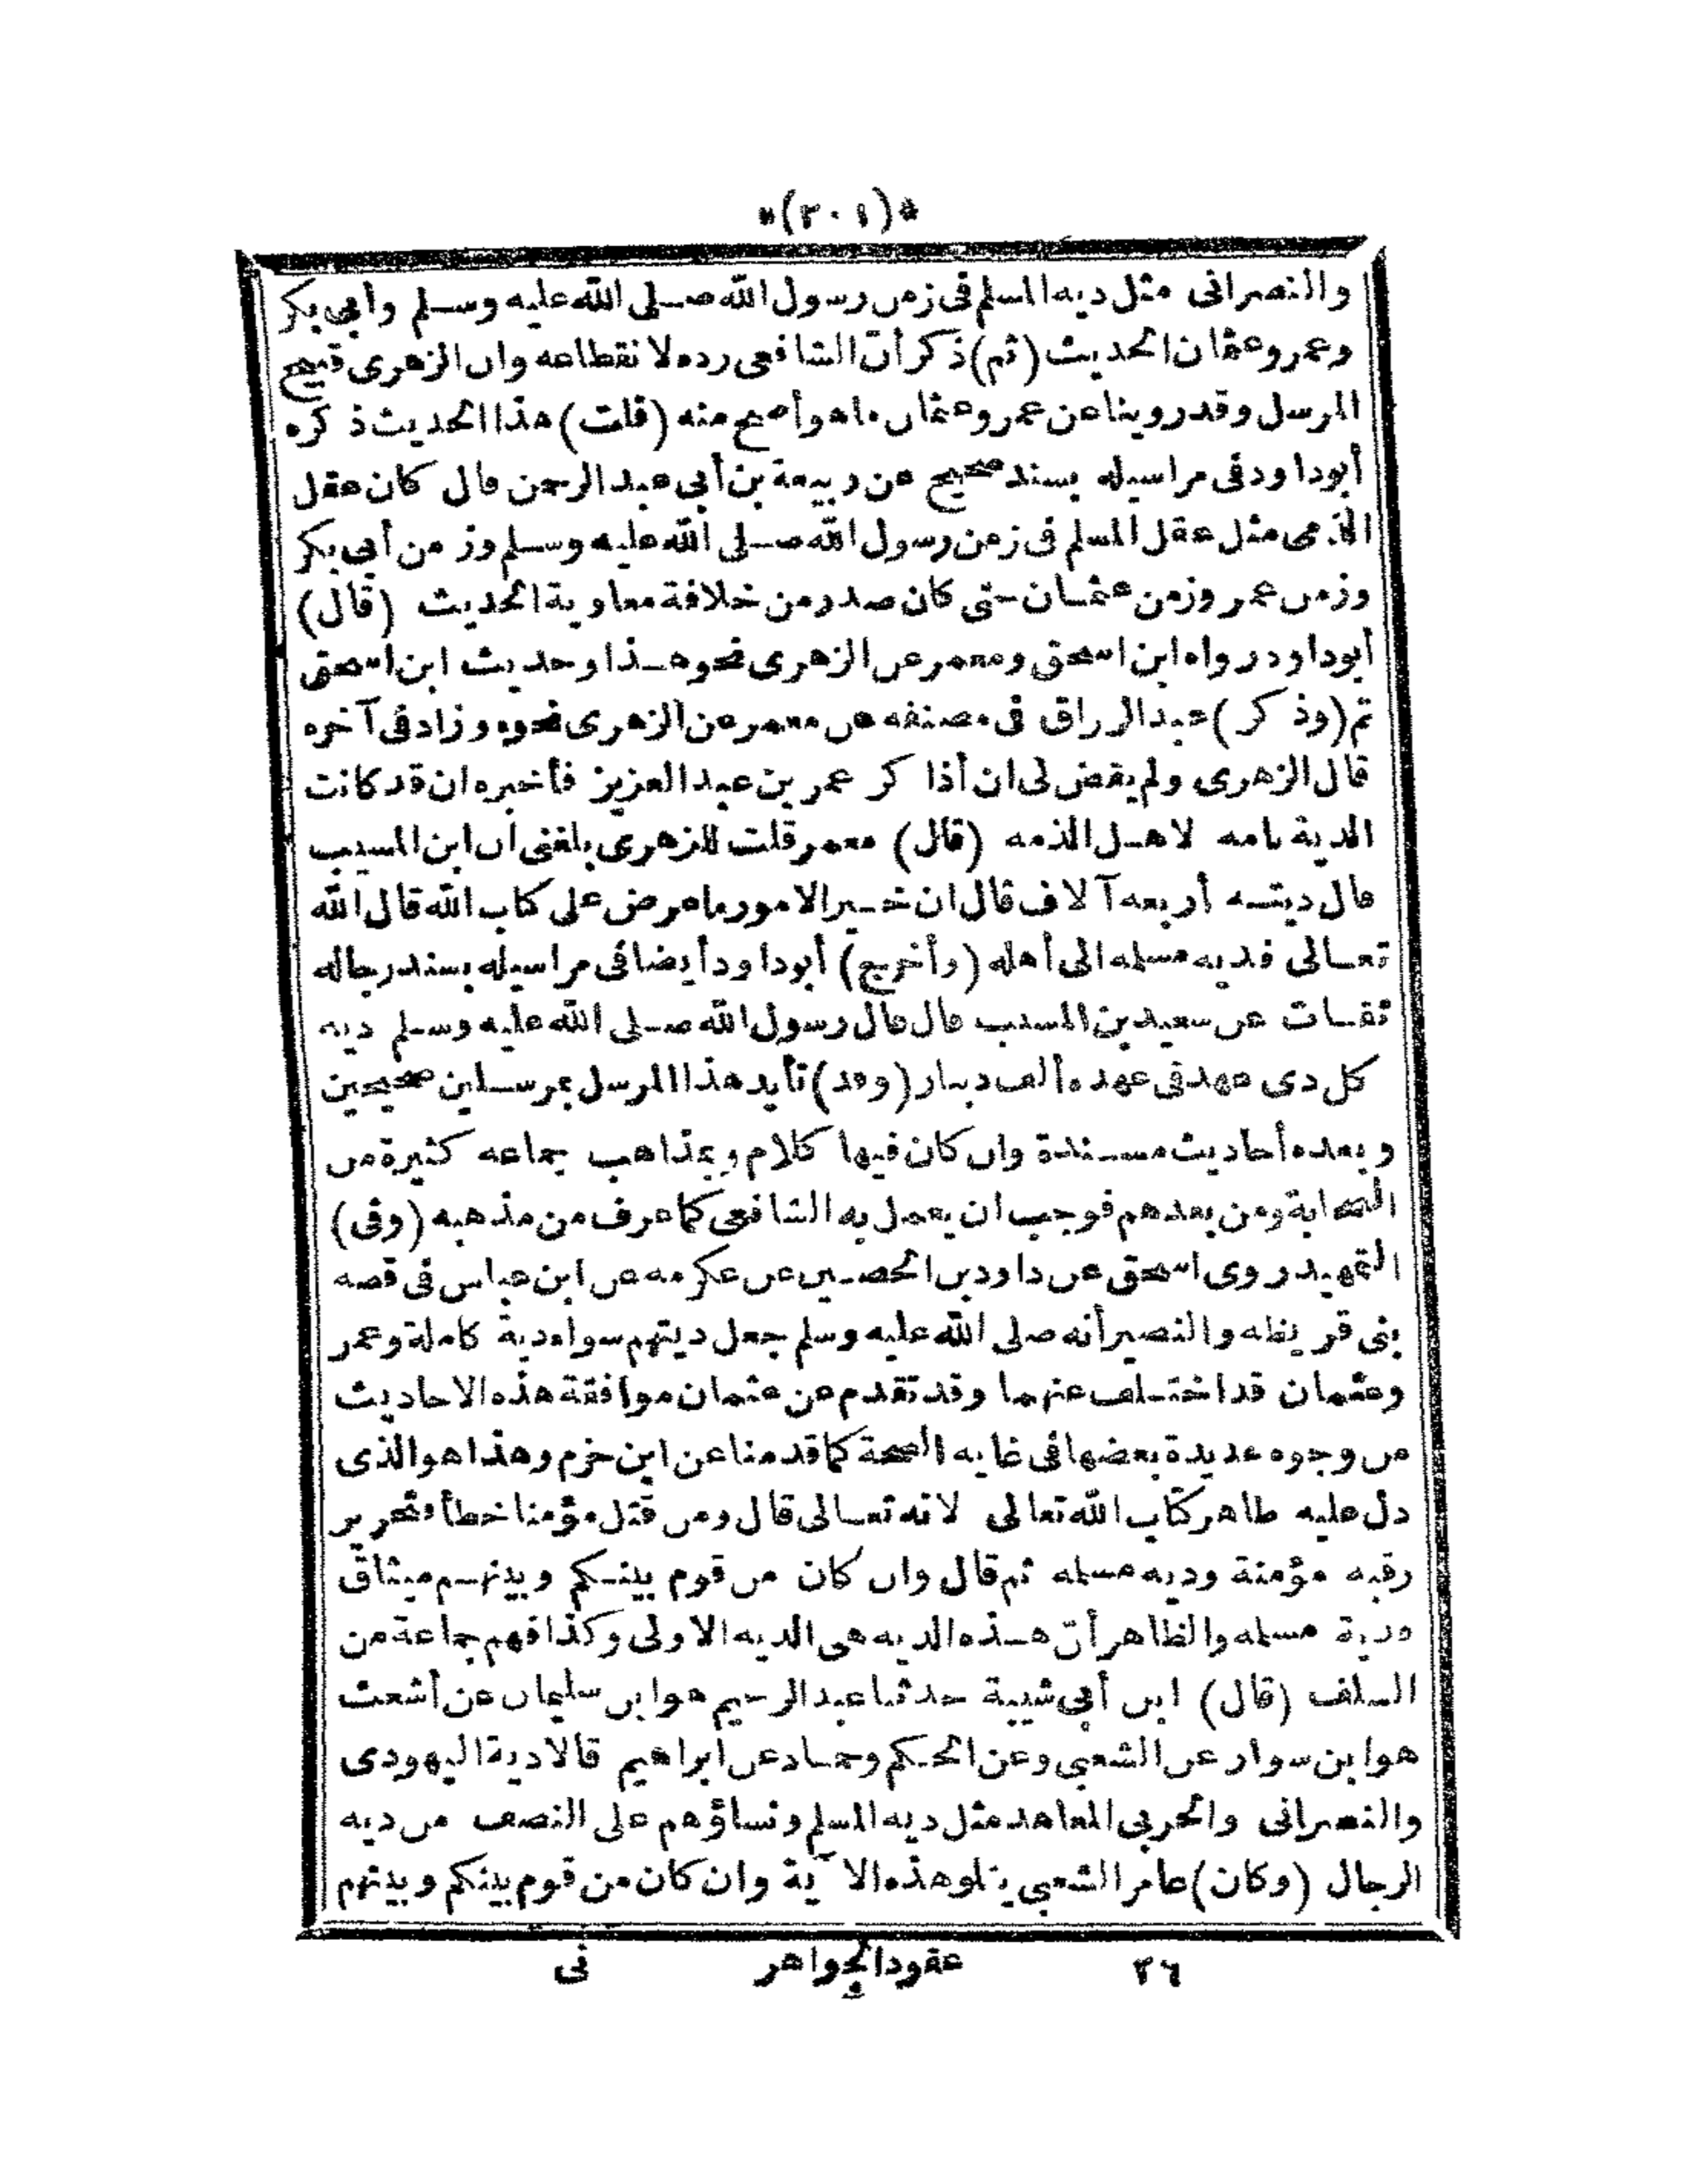 *(٢٠١)*
والنصرانى مثل ديه المسلم فى زمن رسول الله صلى الله عليه وسلم وأبى بكر
وعمر وعثمان الحديث (ثم) ذكر أن الشافعى رده لانقطاعه وان الزهرى قبيح
المرسل وقد روينا عن عمر وعثمان ماهو أصح منه (قلت) هذا الحديث ذكره
أبوداود فى مراسيله بسند صحيح عن ربيعة بن أبى عبد الرحمن قال كان عقل
الذمى مثل عقل المسلم فى زمن رسول الله صلى الله عليه وسلم وزمن أبى بكر
وزمن عمر وزمن عثمان حتى كان صدر من خلافة معاوية الحديث (قال)
أبوداود رواه ابن اسحق ومعمر عن الزهرى نحو هذا وحديث ابن اسحق
تم (وذكر) عبد الرزاق فى مصنفه عن معمر عن الزهرى نحوه وزاد فى آخره
قال الزهرى ولم يقض لى ان أذاكر عمر بن عبد العزيز فأخبره ان قد كانت
الدية تامه لاهل الذمه (قال) معمر قلت للزهرى بلغنى ان ابن المسيب
قال ديته أربعه آلاف قال ان خير الامور ما عرض على كتاب الله قال الله
تعالى فديه مسلمه الى أهله (وأخرج) أبوداود أيضا فى مراسيله بسند رجاله
ثقات عن سعيد بن المسيب قال قال رسول الله صلى الله عليه وسلم ديه
كل ذى عهد فى عهده ألف دينار (وقد) تأيد هذا المرسل بمرسلين صحيحين
وبعده أحاديث مسندة وان كان فيها كلام وبمذاهب جماعه كثيرة من
الصحابة ومن بعدهم فوجب ان يعمل به الشافعى كما عرف من مذهبه (وفى)
التمهيد روى اسحق عن داود بن الحصين عن عكرمه عن ابن عباس فى قصه
بنى قريظه والنضير أنه صلى الله عليه وسلم جعل ديتهم سواء دية كاملة وعمر
وعثمان قد اختلف عنهما وقد تقدم عن عثمان موافقة هذه الاحاديث
من وجوه عديدة بعضها فى غايه الصحة كما قدمنا عن ابن حزم وهذا هو الذى
دل عليه ظاهر كتاب الله تعالى لانه تعالى قال ومن قتل مؤمنا خطأ فتحرير
رقبه مؤمنة وديه مسلمه ثم قال وان كان من قوم بينكم وبينهم ميثاق
ودية مسلمه والظاهر أن هذه الديه هى الديه الاولى وكذا فهم جماعة من
السلف (قال) ابن أبى شيبة حدثنا عبد الرحيم هو ابن سليمان عن أشعث
هو ابن سوار عن الشعبى وعن الحكم وحماد عن ابراهيم قالا دية اليهودى
والنصرانى والحربى المعاهد مثل ديه المسلم ونساؤهم على النصف من ديه
الرجال (وكان) عامر الشعبى يتلو هذه الآية وان كان من قوم بينكم وبينهم
٢٦ عقود الجواهر نى